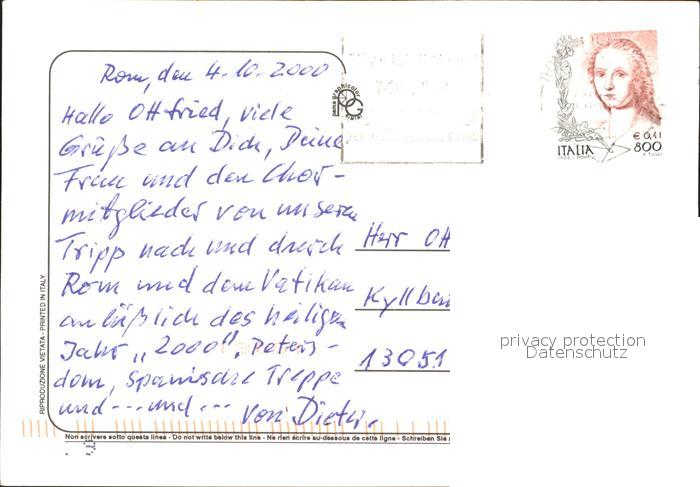 Rom, den 4.10.2000
Hallo Ottfried, viele
Grüße an Dich, Deine
Frau und den Chor-
mitglieder von unserem
Tripp nach und durch
Rom und dem Vatikan
anläßlich des heiligen
Jahr „2000". Peters-
dom, Spanische Treppe
und --- und ---
von Dieter.
Herr Ott
Kyllbur
13051
ITALIA
€ 0,41
800
RIPRODUZIONE VIETATA - PRINTED IN ITALY
Non scrivere sotto questa linea - Do not write below this line - Ne rien écrire au-dessous de cette ligne - Schreiben Sie
privacy protection
Datenschutz